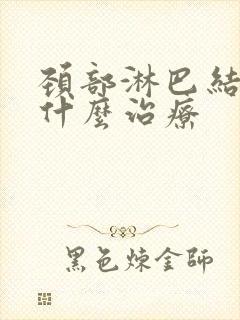 頚部淋巴結
什麼治療
黑色煉金師